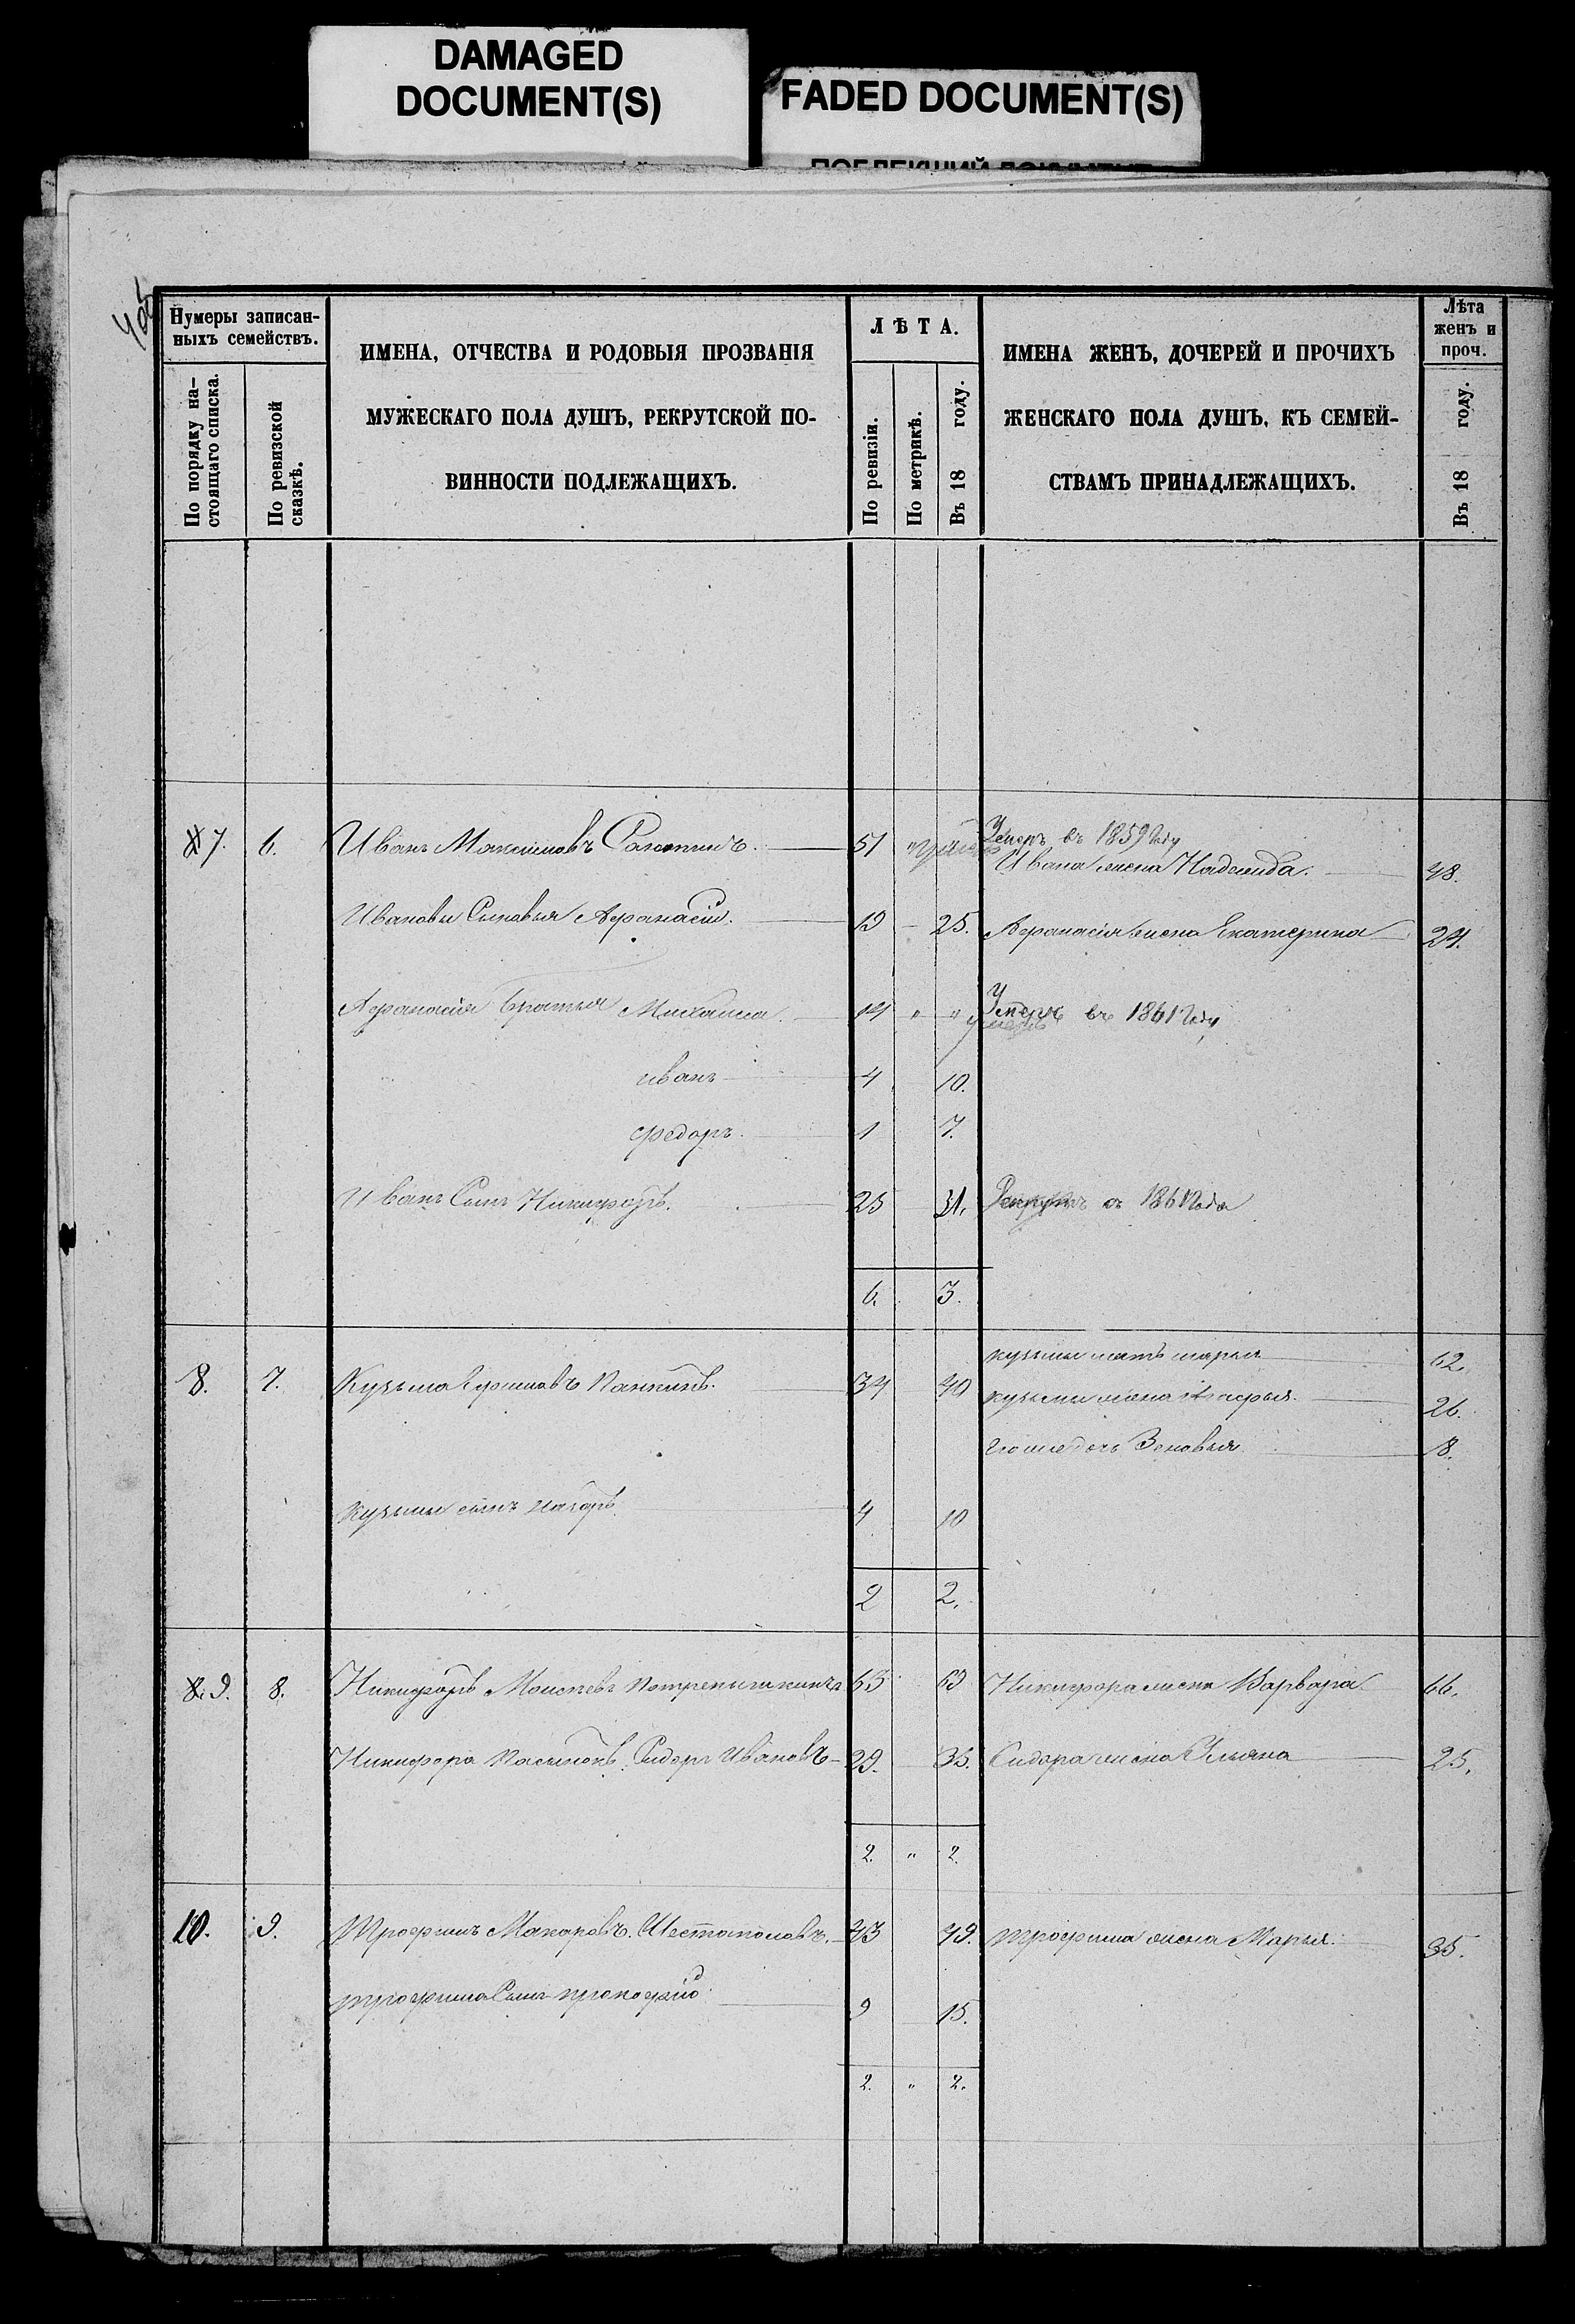 DAMAGED
DOCUMENT(S)
FADED DOCUMENT(S)
405
Нумеры записан-
ныхъ семействъ.
По порядку на-
стоящаго списка.
По ревизской
сказкѣ.
ИМЕНА, ОТЧЕСТВА И РОДОВЫЯ ПРОЗВАНІЯ
МУЖЕСКАГО ПОЛА ДУШЪ, РЕКРУТСКОЙ ПО-
ВИННОСТИ ПОДЛЕЖАЩИХЪ.
ЛѢТА.
По ревизіи.
По метрикѣ.
Въ 18 году.
ИМЕНА ЖЕНЪ, ДОЧЕРЕЙ И ПРОЧИХЪ
ЖЕНСКАГО ПОЛА ДУШЪ, КЪ СЕМЕЙ-
СТВАМЪ ПРИНАДЛЕЖАЩИХЪ.
Лѣта
женъ и
проч.
Въ 18 году.
Умеръ въ 1859 году
7. 6. Иванъ Максимовъ 51 Ивана жена Надежда. 48.
Ивановы Сыновья Афанасій. 19 - 25. Афанасія жена Екатерина 24.
Афанасія братья Михайла 14 " " Умеръ въ 1861 году
иванъ 4 10.
федоръ. 1 7.
Иванъ Сынъ Никифоръ. 25 31. Рекрутъ съ 1861 года
6. 3.
кузьмы мать марья 62.
8. 7. Кузьма Ефимовъ Панкинъ. 34 40 кузьмы жена Агафья. 26.
дочь Зеновья 8.
Кузьмы сынъ Назаръ 4 10
2 2.
8. 9. 8. Никифоръ Моисеевъ 63 69 Никифора жена Варвара 66.
Никифора Пасынокъ Сидоръ Ивановъ 29. 35. Сидора жена Ульяна 25.
2. " 2.
10. 9. Трофимъ Макаровъ Шестопаловъ. 43 49. трофима жена Марья. 35.
трофима Сынъ прокофій 9 15.
2. " 2.